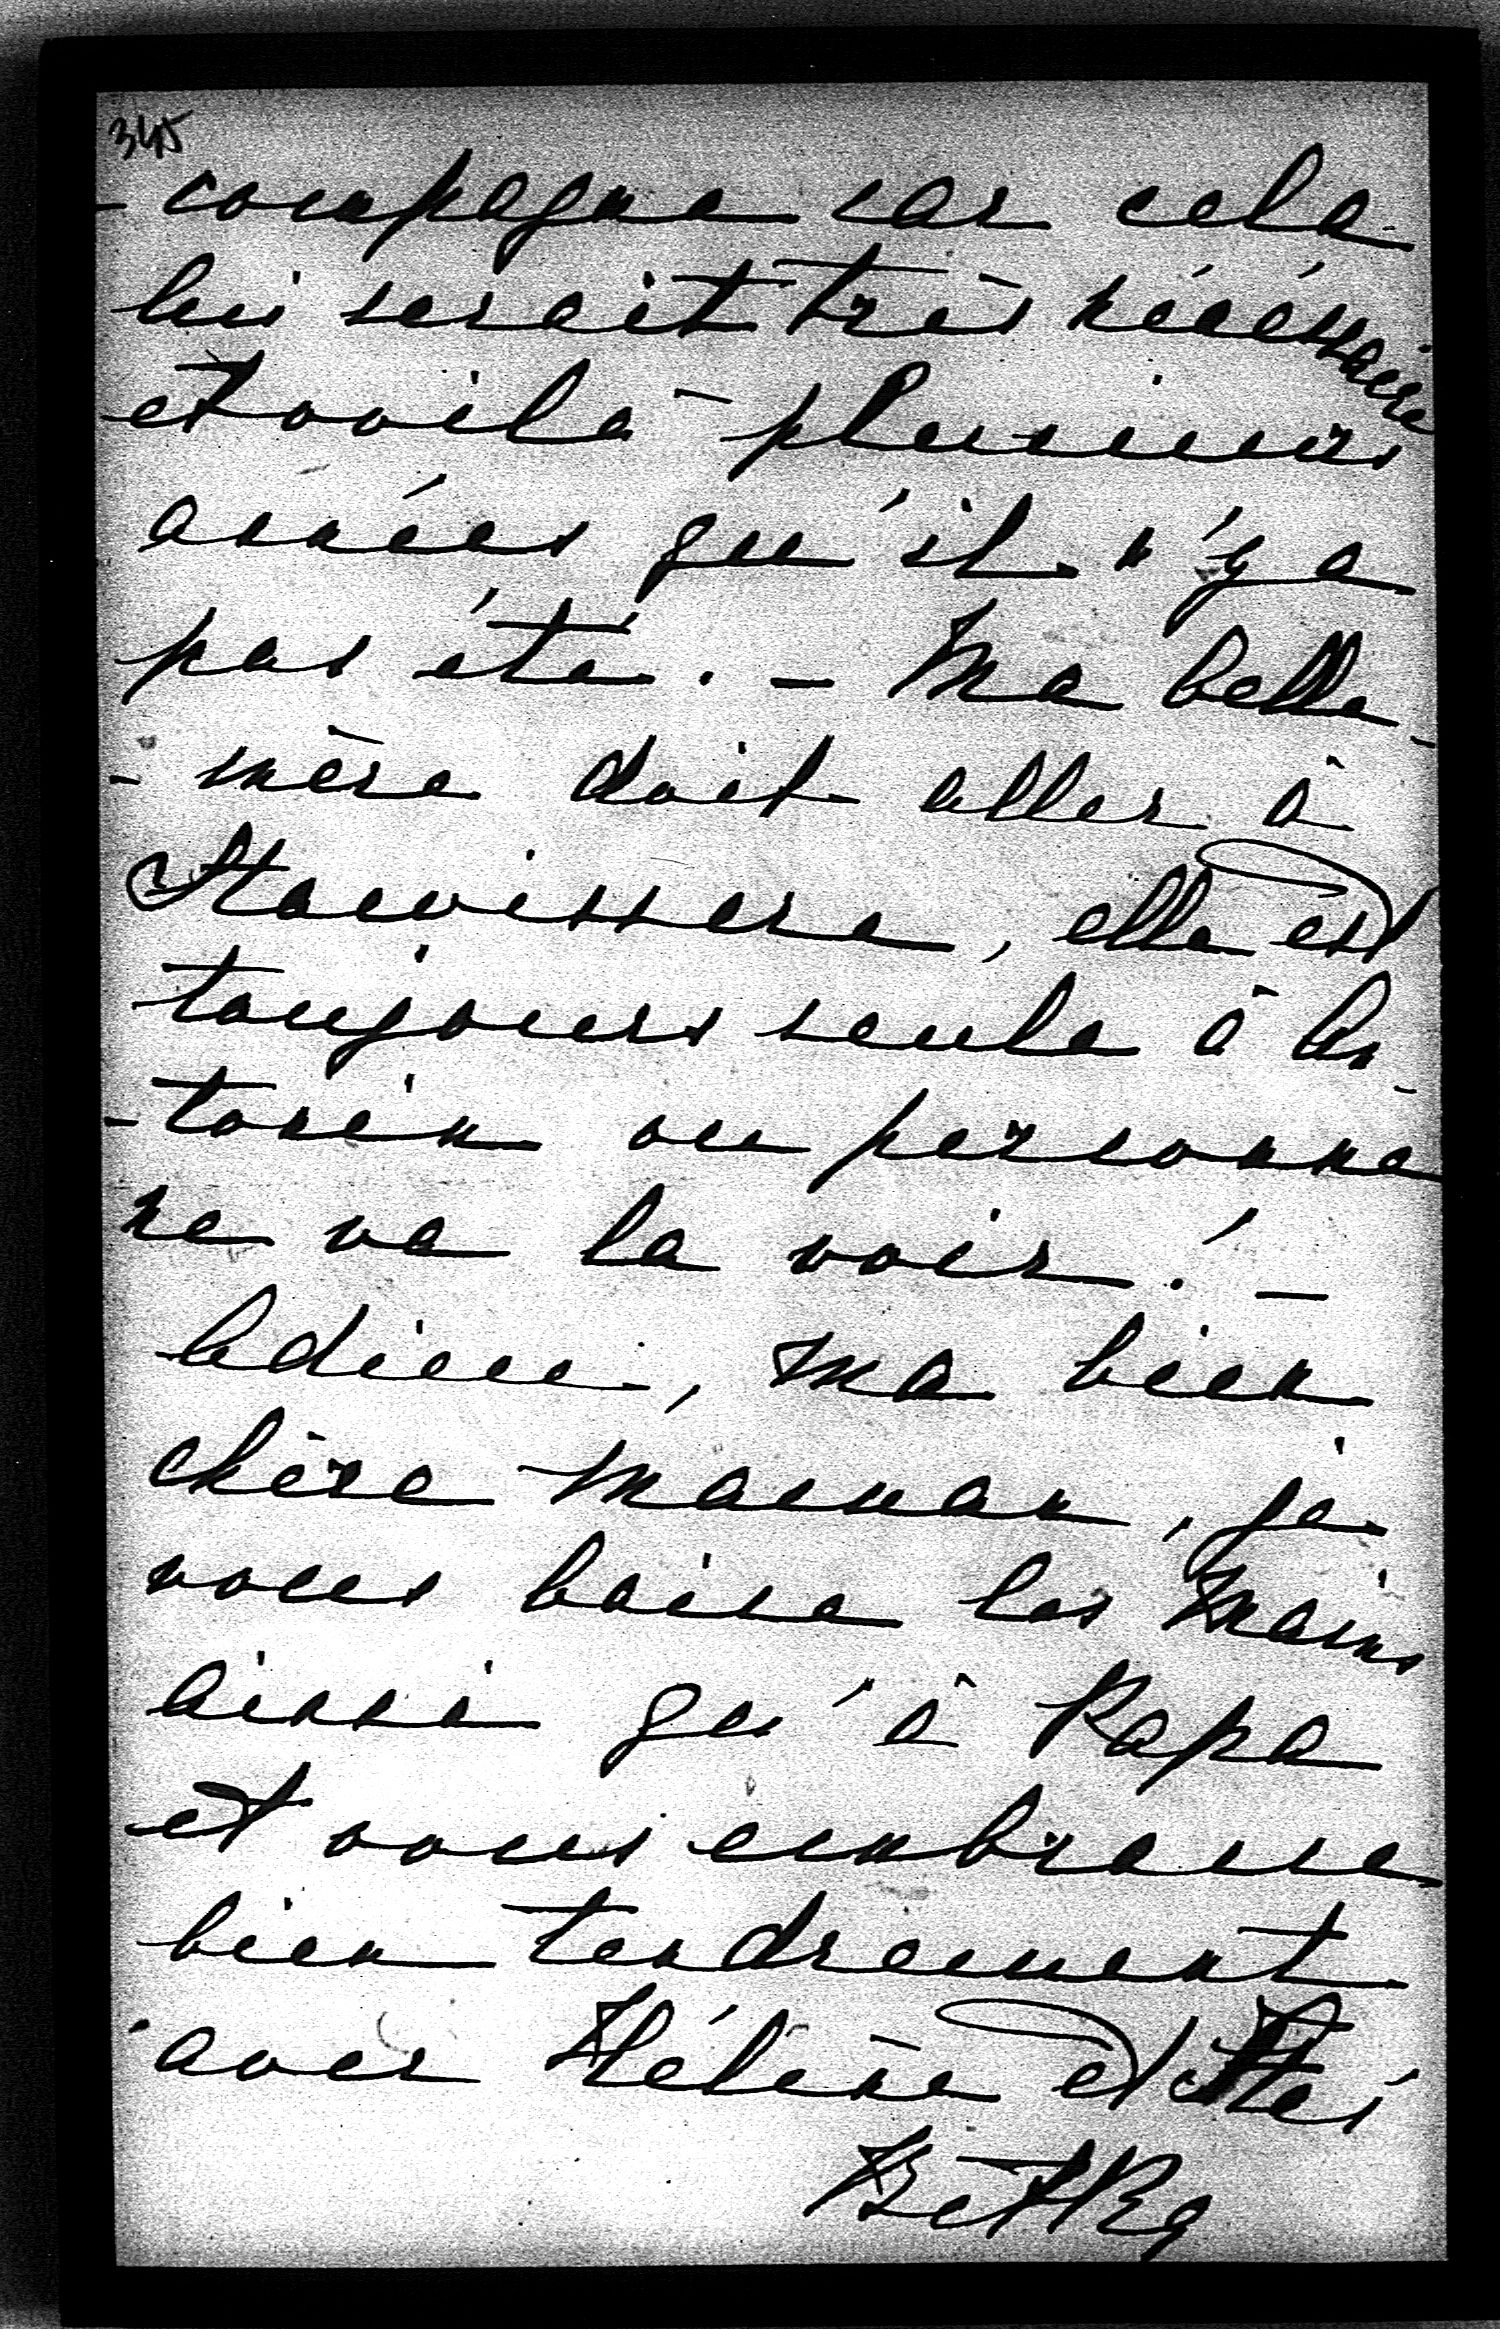 345
-compagne car cela
lui serait très nécéssaire
et voilà plusieurs
années qu'il n'y a
pas été. - Ma belle-
-mère doit aller à
, elle est
toujours seule à An-
-tonin ou personne
ne va la voir! -
Adieu, ma bien
chère Maman, je
vous baise les Mains
ainsi qu'à Papa
et vous embrasse
bien tendrement
avec Hélène et